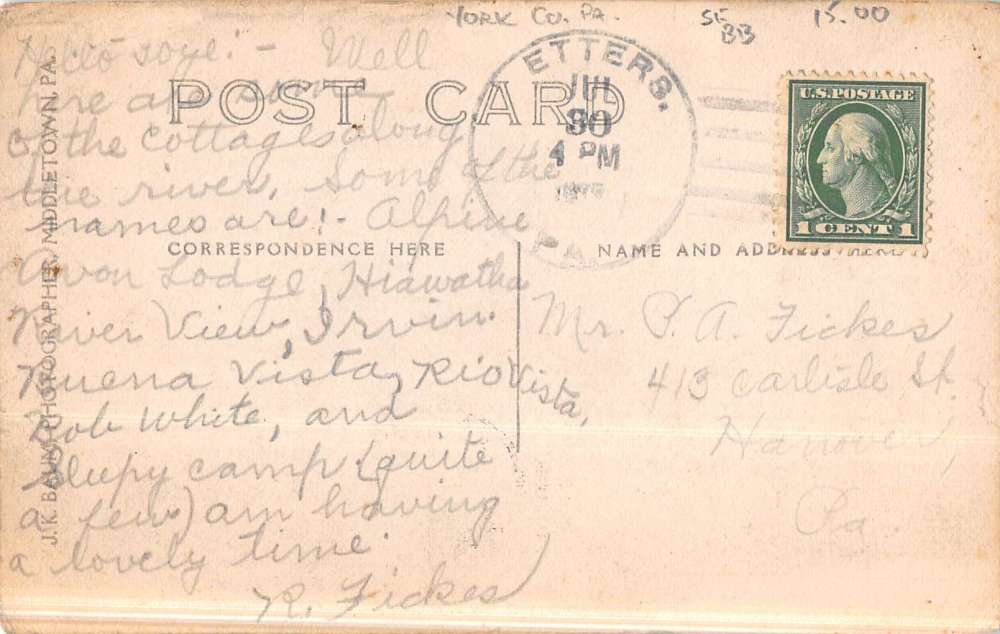 YORK CO. PA.
15.00
POST CARD
ETTERS.
30
4 PM
PA
U.S. POSTAGE
1 CENT 1
J. K. BAUM, PHOTOGRAPHER, MIDDLETOWN, PA.
CORRESPONDENCE HERE
NAME AND ADDRESS HERE
Hello :- Well
here are some
of the cottages along
the river. Some of the
names are:- Alpine
Avon Lodge, Hiawatha
River View, Irvin
Buena Vista, Rio Vista,
Bob White, and
Sleepy camp (quite
a few) am having
a lovely time.
R. Fickes
Mr. P. A. Fickes
413 Carlisle St.
Hanover,
Pa.